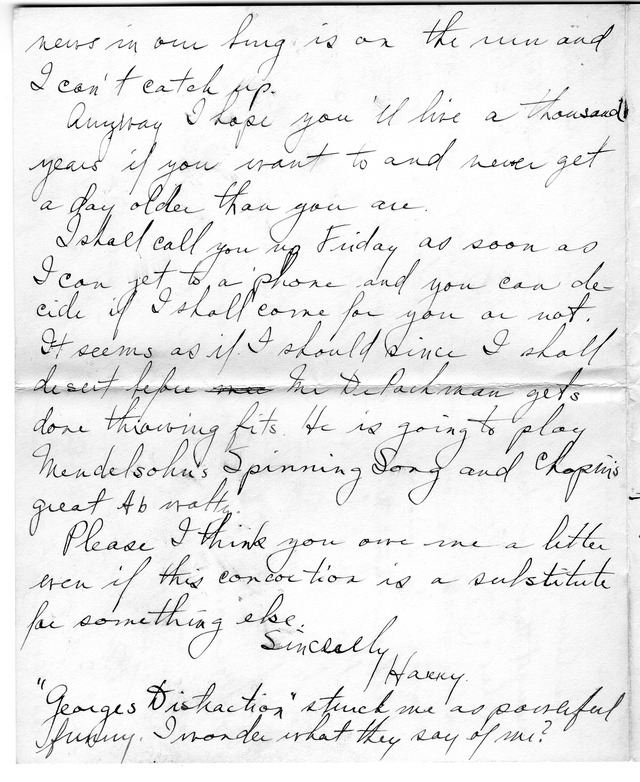 news in our burg is on the run and
I can't catch up.
Anyway I hope you'll live a thousand
years if you want to and never get
a day older than you are.
I shall call you up Friday as soon as
I can get to a 'phone and you can de-
cide if I shall come for you or not.
It seems as if I should since I shall
desert before Mr DePachman gets
done throwing fits. He is going to play
Mendelsohn's Spinning Song and Chopin's
great Ab waltz.
Please I think you owe me a letter
even if this concoction is a substitute
for something else.
Sincerely
Harry.
"Georges Distraction" stuck me as powerful
funny. I wonder what they say of me?